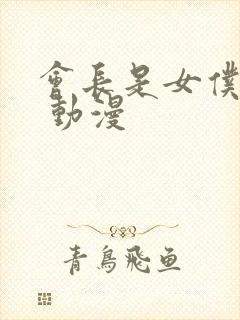 會長是女僕
動漫
青鳥飛鱼